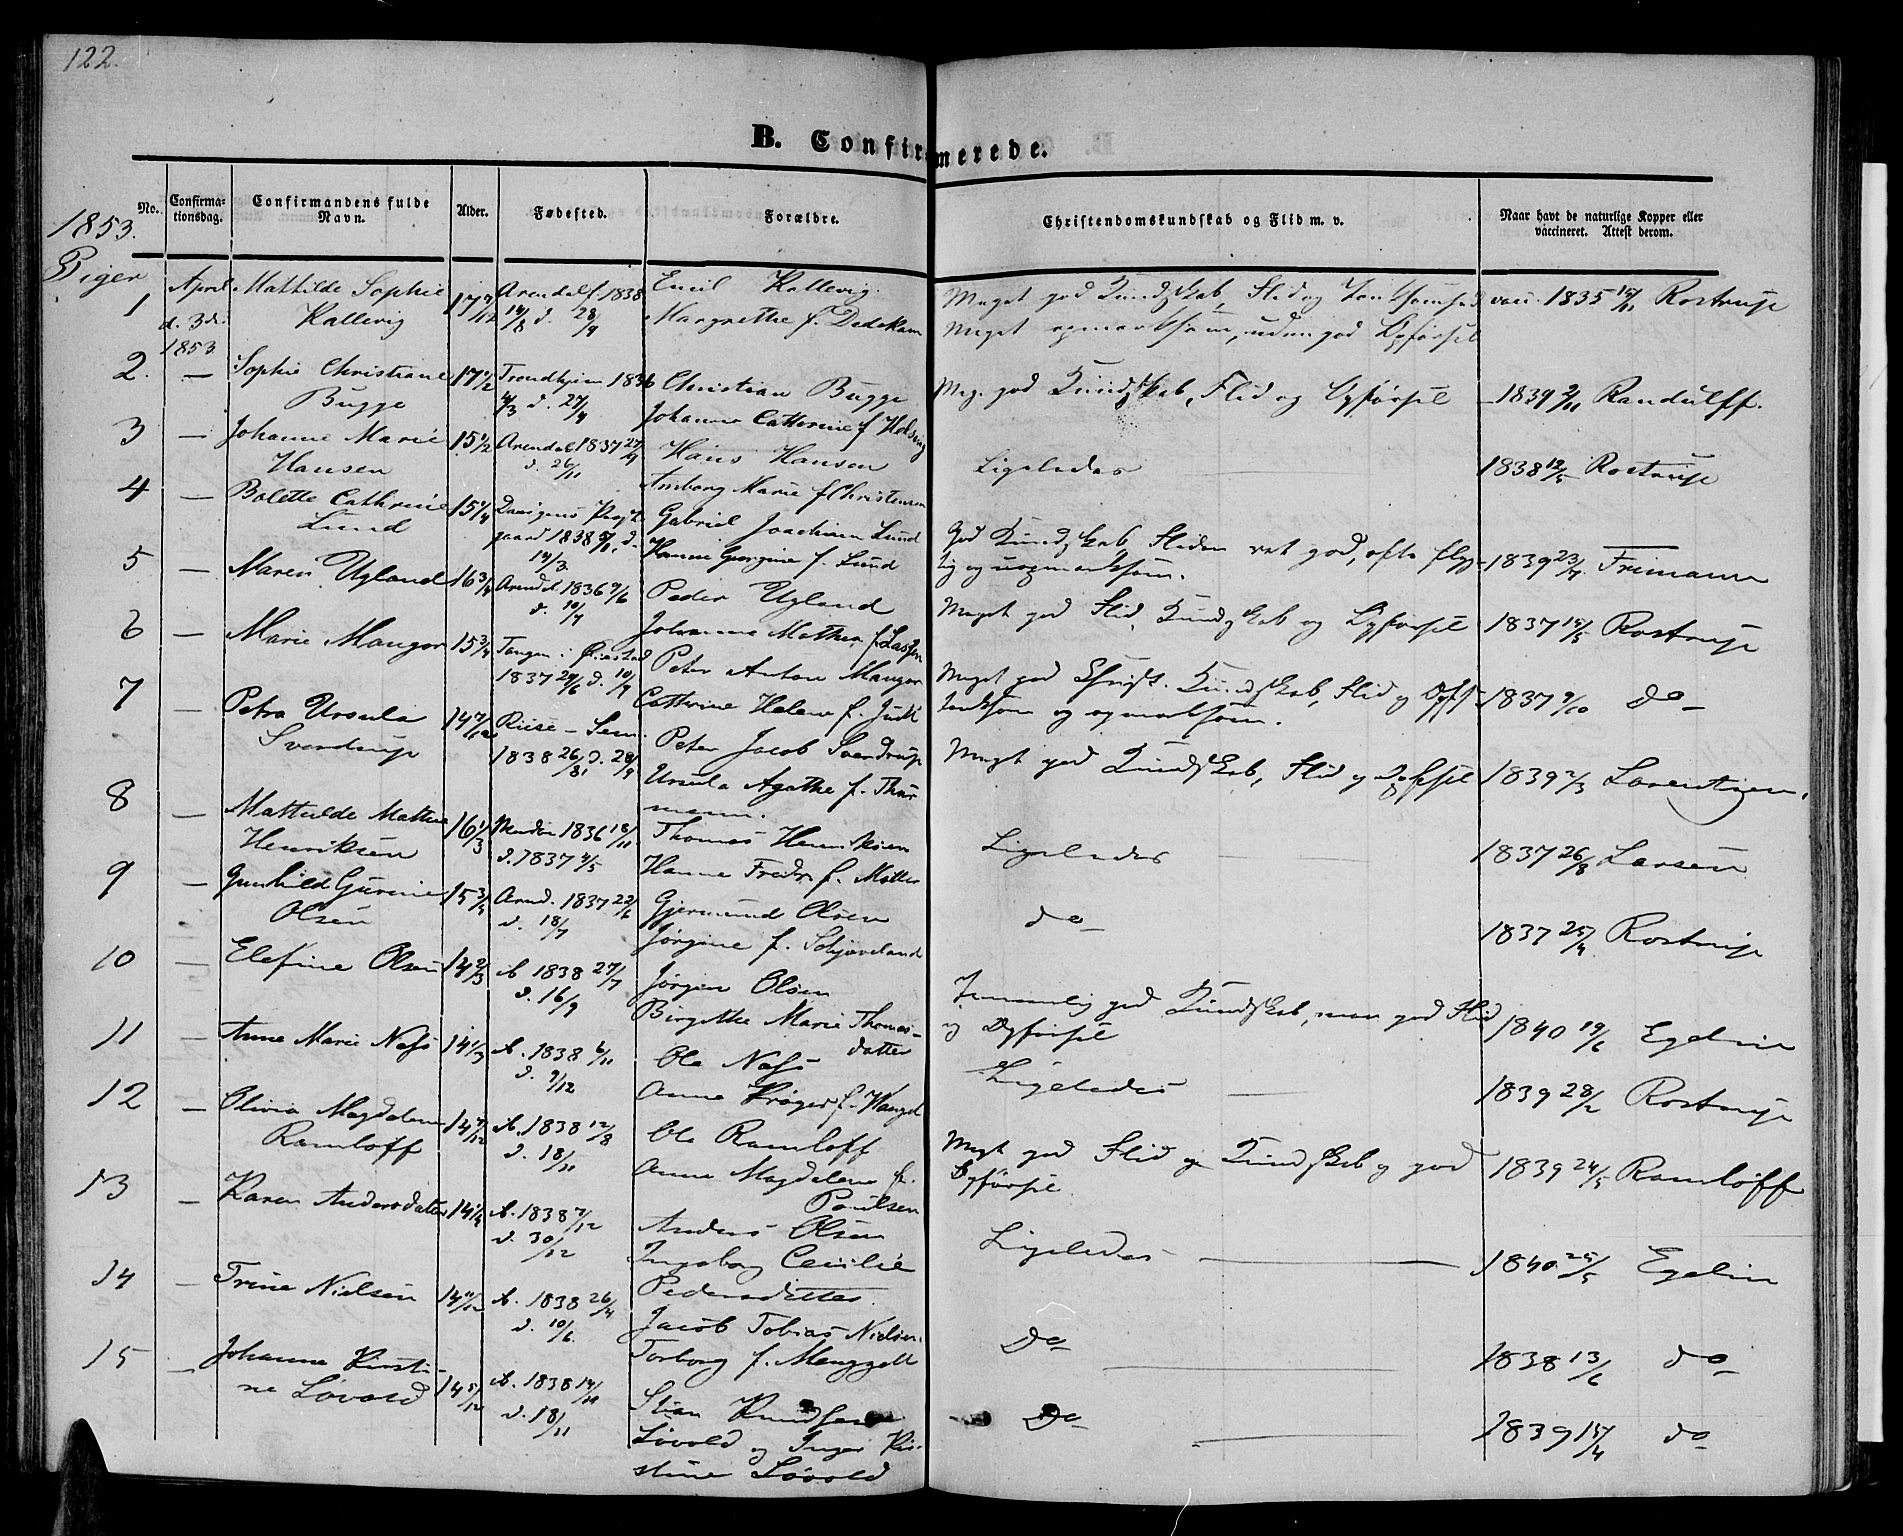 122.
B. Confirmerede.
1853.
Piger
No.
Confirma-
tionsdag.
Confirmandens fulde
Navn.
Alder.
Fødested.
Forældre.
Christendomskundskab og Flid m. v.
Naar havt de naturlige Kopper eller
vaccineret. Attest derom.
1
April
d. 3d.
1853.
Mathilde Sophie
Kallevig
17 7/12
Arendal f. 1838
d. 28/9
Emil Kallevig.
Margrethe f. Dedekam
Meget god Kundskab, Flid og
Meget opmærksom, uden god Opførsel
vacc. 1835 Rostrup
2.
—
Sophie Christiane
Bugge
17 1/12
Trondhjem 1836
4/3 d. 27/4
Christian Bugge
Johanne Cathrine f.
Meg. god Kundskab, Flid og Opførsel
1839 2/11 Randulff.
3
—
Johanne Marie
Hansen
15 1/2
Arendal 1837 27/9
d. 26/11
Hans Hansen
Anborg Marie f Christensen
Ligeledes
1838 12/5 Rostrup
4
—
Bolette Cathrine
Lund
15 1/4
Præste
gaard 1838 d.
14/3
Gabriel Joachim Lund
Hanne Georgine f. Lund
God Kundskab, Fliden ret god, ofte
og uopmærksom.
1839 23/7 Frimann
5
—
Maren Ugland
16 3/4
Arendal 1836 9/6
d. 10/7
Peder Ugland
Johanne Mathea f. Lassen
Meget god Flid, Kundskab og Opførsel
1837 15/5 Rostrup
6
—
Marie Mangor
15 3/4
Tangen i Øiestad
1837 29/6 d. 10/9
Peter Anton Mangor
Cathrine Helene f. Juell
Meget god Christ. Kundskab, Flid og Opf.
og opmærksom.
1837 9/10 do
7
—
Petra Ursula
Sverdrup
14 7/12
Riise — Sem
1838 26/8 d. 28/9
Peter Jacob Sverdrup
Ursula Agathe f. Thur
mann.
Meget god Kundskab, Flid og Opførsel
1839 2/3 Lorentzen.
8
—
Mathilde Mathea
Henriksen
16 1/3
1836 18/11
d. 1837 4/5
Thomas Henriksen
Hanne Fredr. f. Møller
Ligeledes
1837 26/8 Larsen
9
—
Gunhild Gurine
Olsen
15 3/4
Arend. 1837 22/6
d. 18/7
Gjermund Olsen
Jørgine f.
do
1837 25/4 Rostrup
10
—
Elefine Olsen
14 2/3
A. 1838 27/7
d. 16/9
Jørgen Olsen
Birgithe Marie Thomas-
datter
Temmelig god Kundskab, men god Flid
og Opførsel
1840 19/6 Egelin
11
—
Anne Marie Næss
14 1/3
A. 1838 6/11
d. 9/12
Ole Næss
Anne Krøger f. Wangel
Ligeledes
1839 28/2 Rostrup
12
—
Olivia Magdalene
Ramløff
14 7/12
A. 1838 12/8
d. 18/11
Ole Ramløff
Anne Magdalene f.
Poulsen
Meget god Flid og Kundskab og god
Opførsel.
1839 24/5 Ramløff
13
—
Karen Andersdatter
14 1/4
A. 1838 7/12
d. 30/12
Anders Olsen
Ingeborg Cecilie
Pedersdatter.
Ligeledes
1840 25/5 Egelin
14
—
Trine Nielsen
14 11/12
A. 1838 26/4
d. 10/6
Jacob Tobias Nielsen.
Torborg f. Menzzell
Do
1838 13/6 do
15
—
Johanne Kirsti-
ne Løvold
14 5/12
A. 1838 14/10
d. 18/11
Stian Knudsen
Løvold og Inger Kir-
stine Løvold
Do
1839 15/4 do